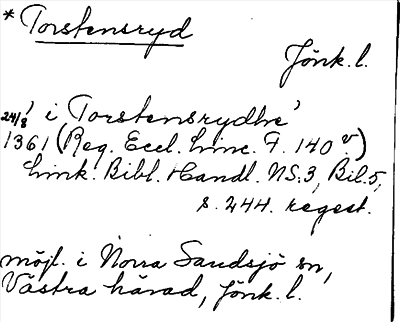 * Torstensryd
Jönk. l.
24/8 'i Torstensrydhe'
1361 (Reg. Eccl. Linc. F. 140 v.)
Link. Bibl. Handl. NS. 3, Bil. 5,
s. 244. regest.
möjl. i Norra Sandsjö sn,
Västra härad, Jönk. l.